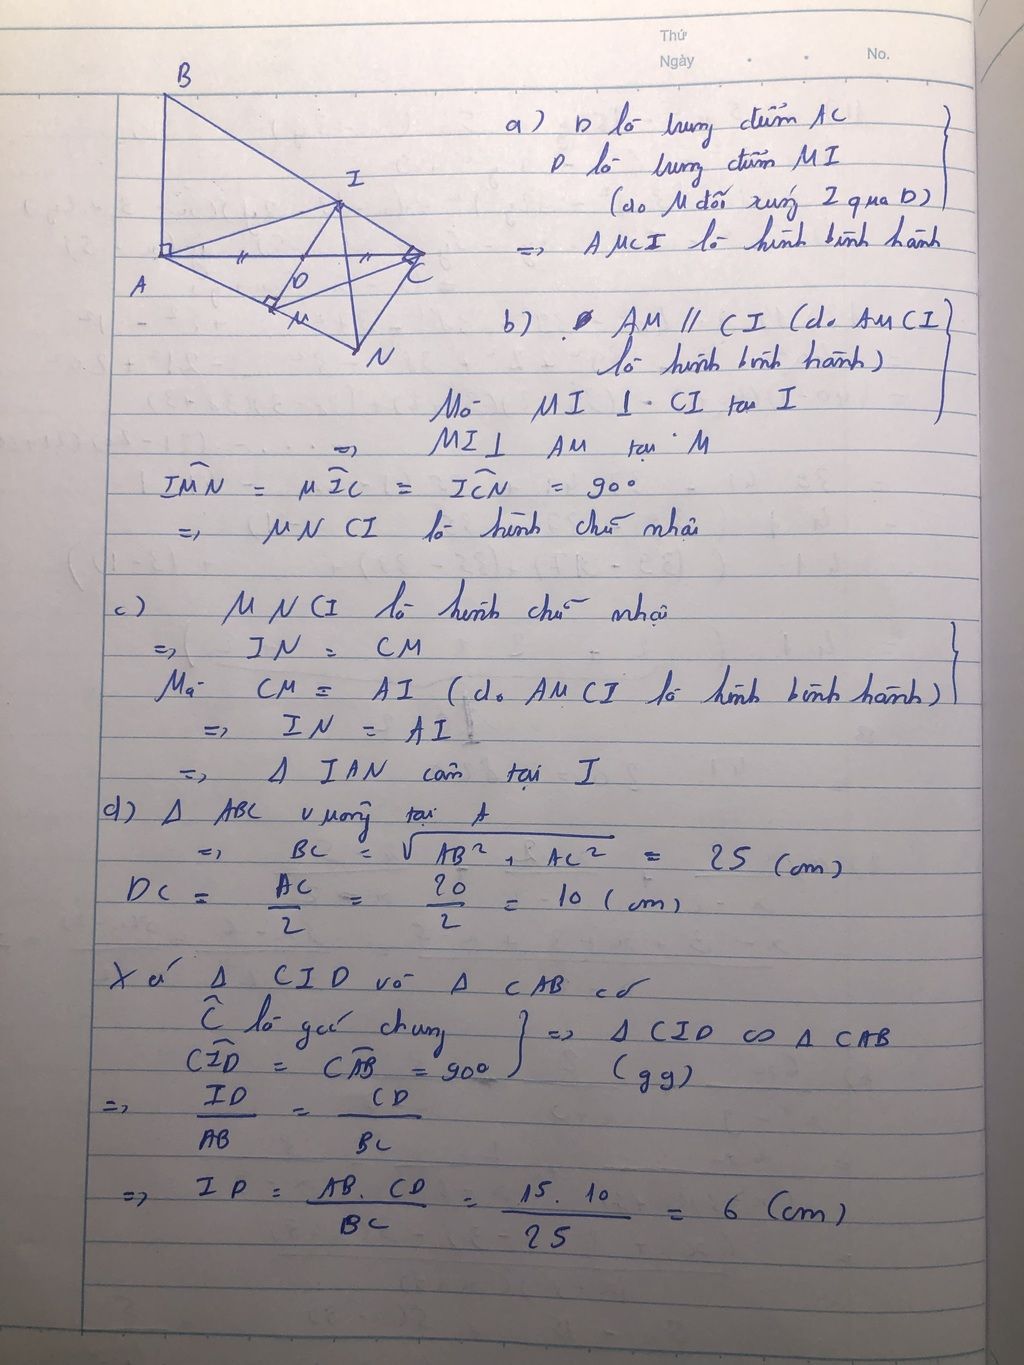 Thứ
Ngày . . No.
B
I
A
D
C
M
N
a) D là trung điểm AC
D là trung điểm MI
(do M đối xứng I qua D)
=> AMCI là hình bình hành
b) AM // CI (do AMCI
là hình bình hành)
Mà MI ⊥ CI tại I
=> MI ⊥ AM tại M
IM̂N = MÎC = IĈN = 90°
=> MNCI là hình chữ nhật
c) MNCI là hình chữ nhật
=> IN = CM
Mà CM = AI (do AMCI là hình bình hành)
=> IN = AI
=> Δ IAN cân tại I
d) Δ ABC vuông tại A
=> BC = √(AB² + AC²) = 25 (cm)
DC = AC/2 = 20/2 = 10 (cm)
Xét Δ CID và Δ CAB có
Ĉ là góc chung
CÎD = CÂB = 90°
=> Δ CID ∽ Δ CAB
(gg)
=> ID/AB = CD/BC
=> ID = AB.CD/BC = 15.10/25 = 6 (cm)